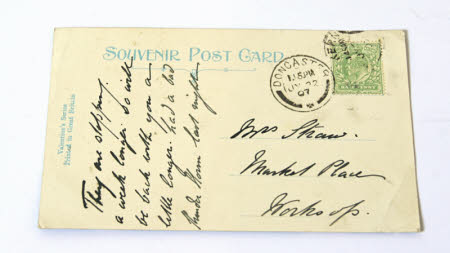 SOUVENIR POST CARD
Valentine's Series
Printed in Great Britain
They are stopping
a week longer. So will
be back with you a
little longer. had a bad
thunder storm last night
DONCASTER
1.15PM
JY 22
07
Mrs Straw.
Market Place
Worksop.